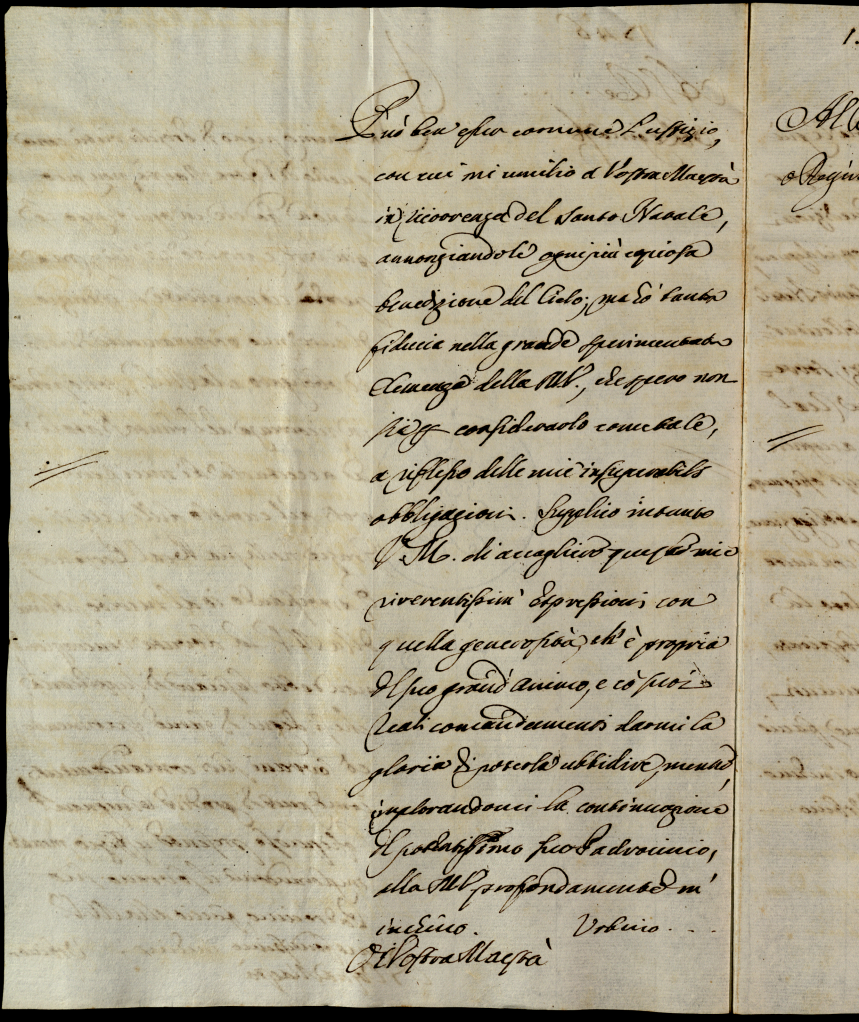 Può ben esser comune l'uffizio,
con cui mi umilio a Vostra Maestà
in ricorrenza del Santo Natale,
annonziandole ogni più copiosa
benedizione del Cielo; ma hò tanta
fiducia nella grande sperimentata
Clemenza della M.V., che spero non
sia p considerarlo come tale,
a riflesso delle mie insuperabili
obbligazioni. Supplico intanto
V. M. di accogliere queste mie
riverentissime Espressioni con
quella generosità, ch'è propria
del suo grand'animo, e co' suoi
reali comandamenti darmi la
gloria di poterla ubbidire, mentre,
implorandomi la continuazione
del potentissimo suo Padrocinio,
alla M.V. profondamente m'
inchino. Urbino . . .
Di Vostra Maestà
1.
All
o Regin